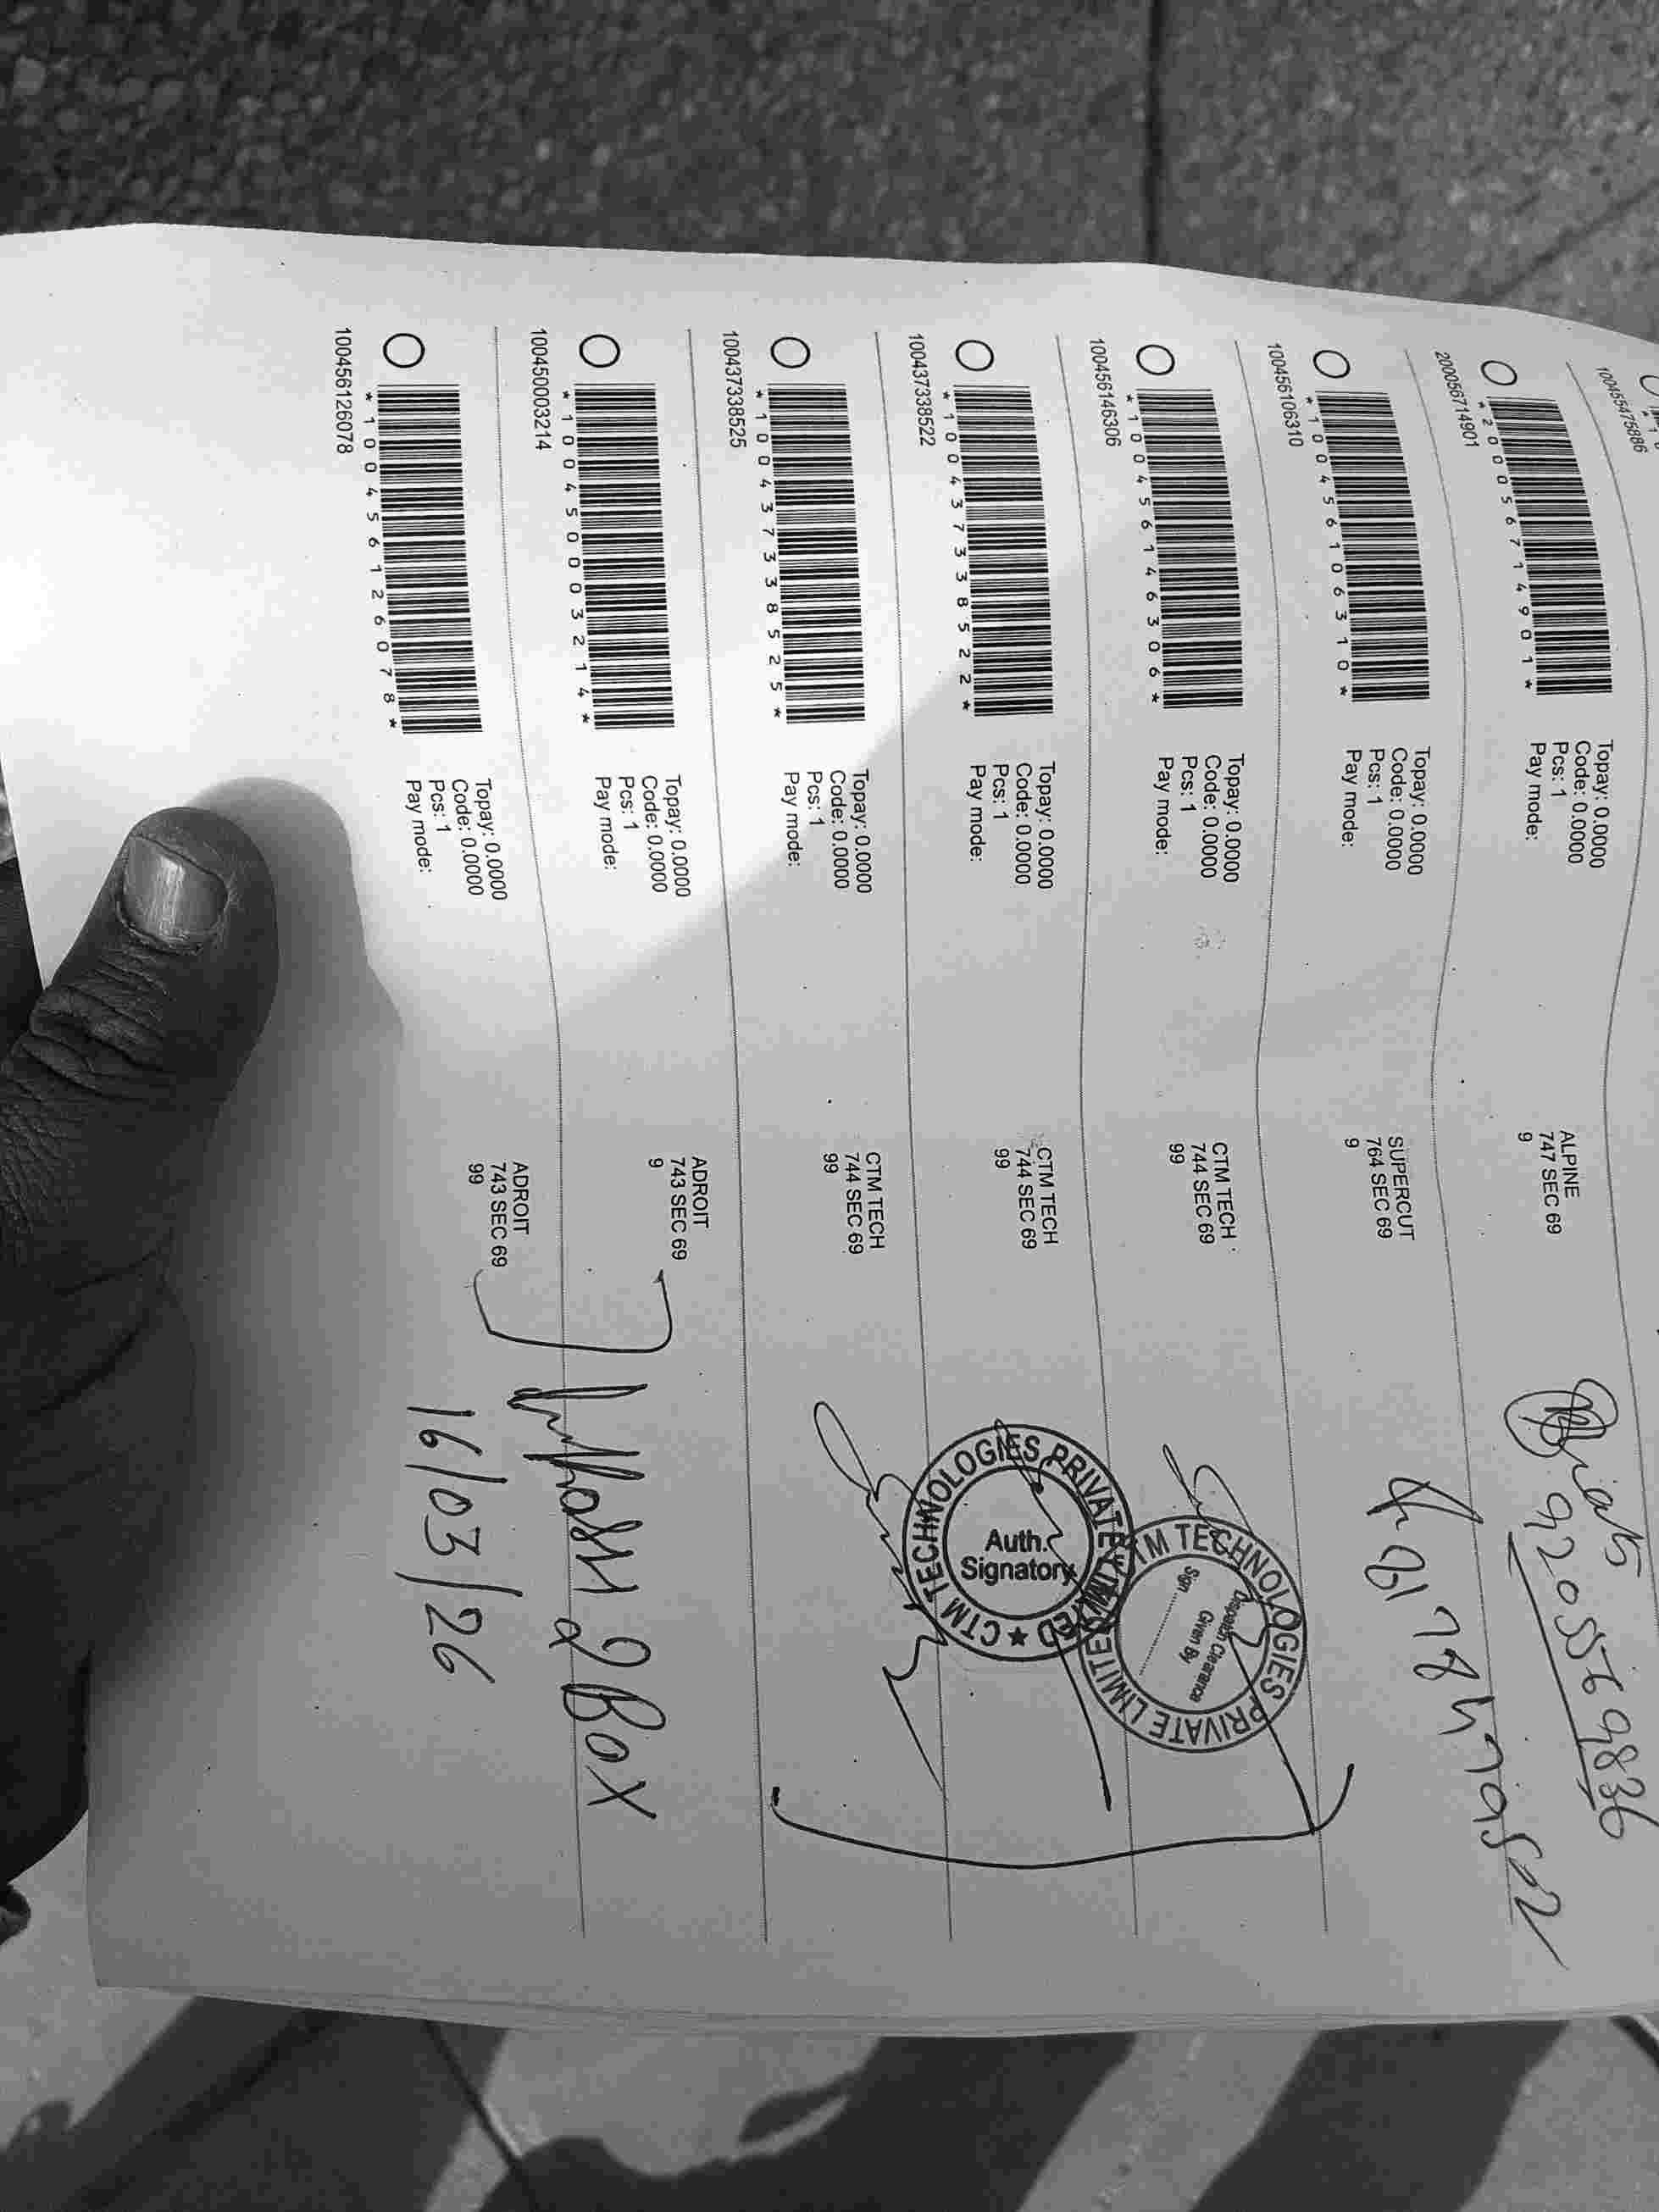 100455475886
*200056714901*
200056714901
Topay: 0.0000
Code: 0.0000
Pcs: 1
Pay mode:
ALPINE
747 SEC 69
9
9205569836
*100456106310*
100456106310
Topay: 0.0000
Code: 0.0000
Pcs: 1
Pay mode:
SUPERCUT
764 SEC 69
9
*100456146306*
100456146306
Topay: 0.0000
Code: 0.0000
Pcs: 1
Pay mode:
CTM TECH
744 SEC 69
99
CTM TECHNOLOGIES PRIVATE LIMITED
Despatch Clearance
Given By
Sign
*100437338522*
100437338522
Topay: 0.0000
Code: 0.0000
Pcs: 1
Pay mode:
CTM TECH
744 SEC 69
99
★ CTM TECHNOLOGIES PRIVATE LIMITED
Auth.
Signatory
*100437338525*
100437338525
Topay: 0.0000
Code: 0.0000
Pcs: 1
Pay mode:
CTM TECH
744 SEC 69
99
*100450003214*
100450003214
Topay: 0.0000
Code: 0.0000
Pcs: 1
Pay mode:
ADROIT
743 SEC 69
9
2 Box
*100456126078*
100456126078
Topay: 0.0000
Code: 0.0000
Pcs: 1
Pay mode:
ADROIT
743 SEC 69
99
16/03/26